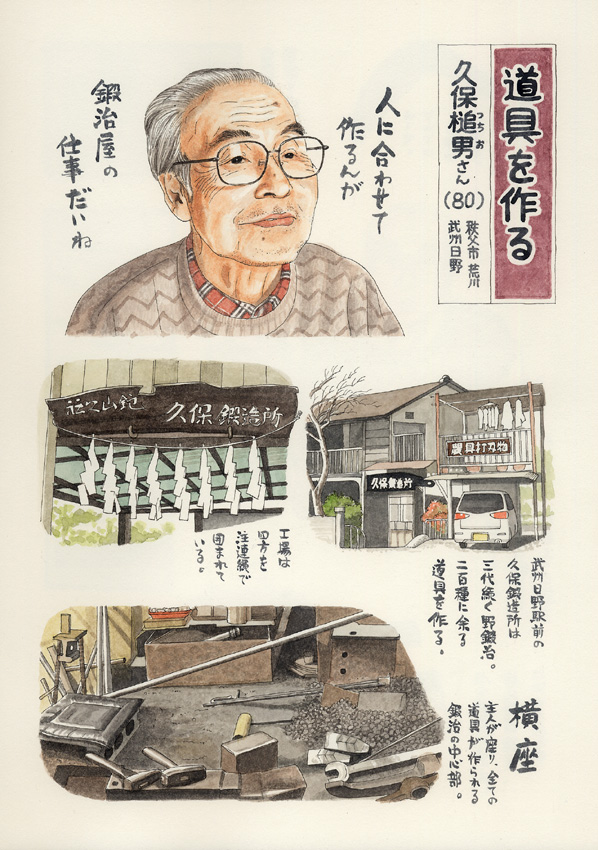 道具を作る
久保槌男さん(80)
つちお
秩父市 荒川
武州日野
人に合わせて
作るんが
鍛冶屋の
仕事だいね
久保鍛造所
工場は
四方を
注連縄で
囲まれて
いる。
農具打刃物
久保鍛造所
武州日野駅前の
久保鍛造所は
三代続く野鍛冶。
二百種に余る
道具を作る。
横座
主人が座り、全ての
道具が作られる
鍛冶の中心部。